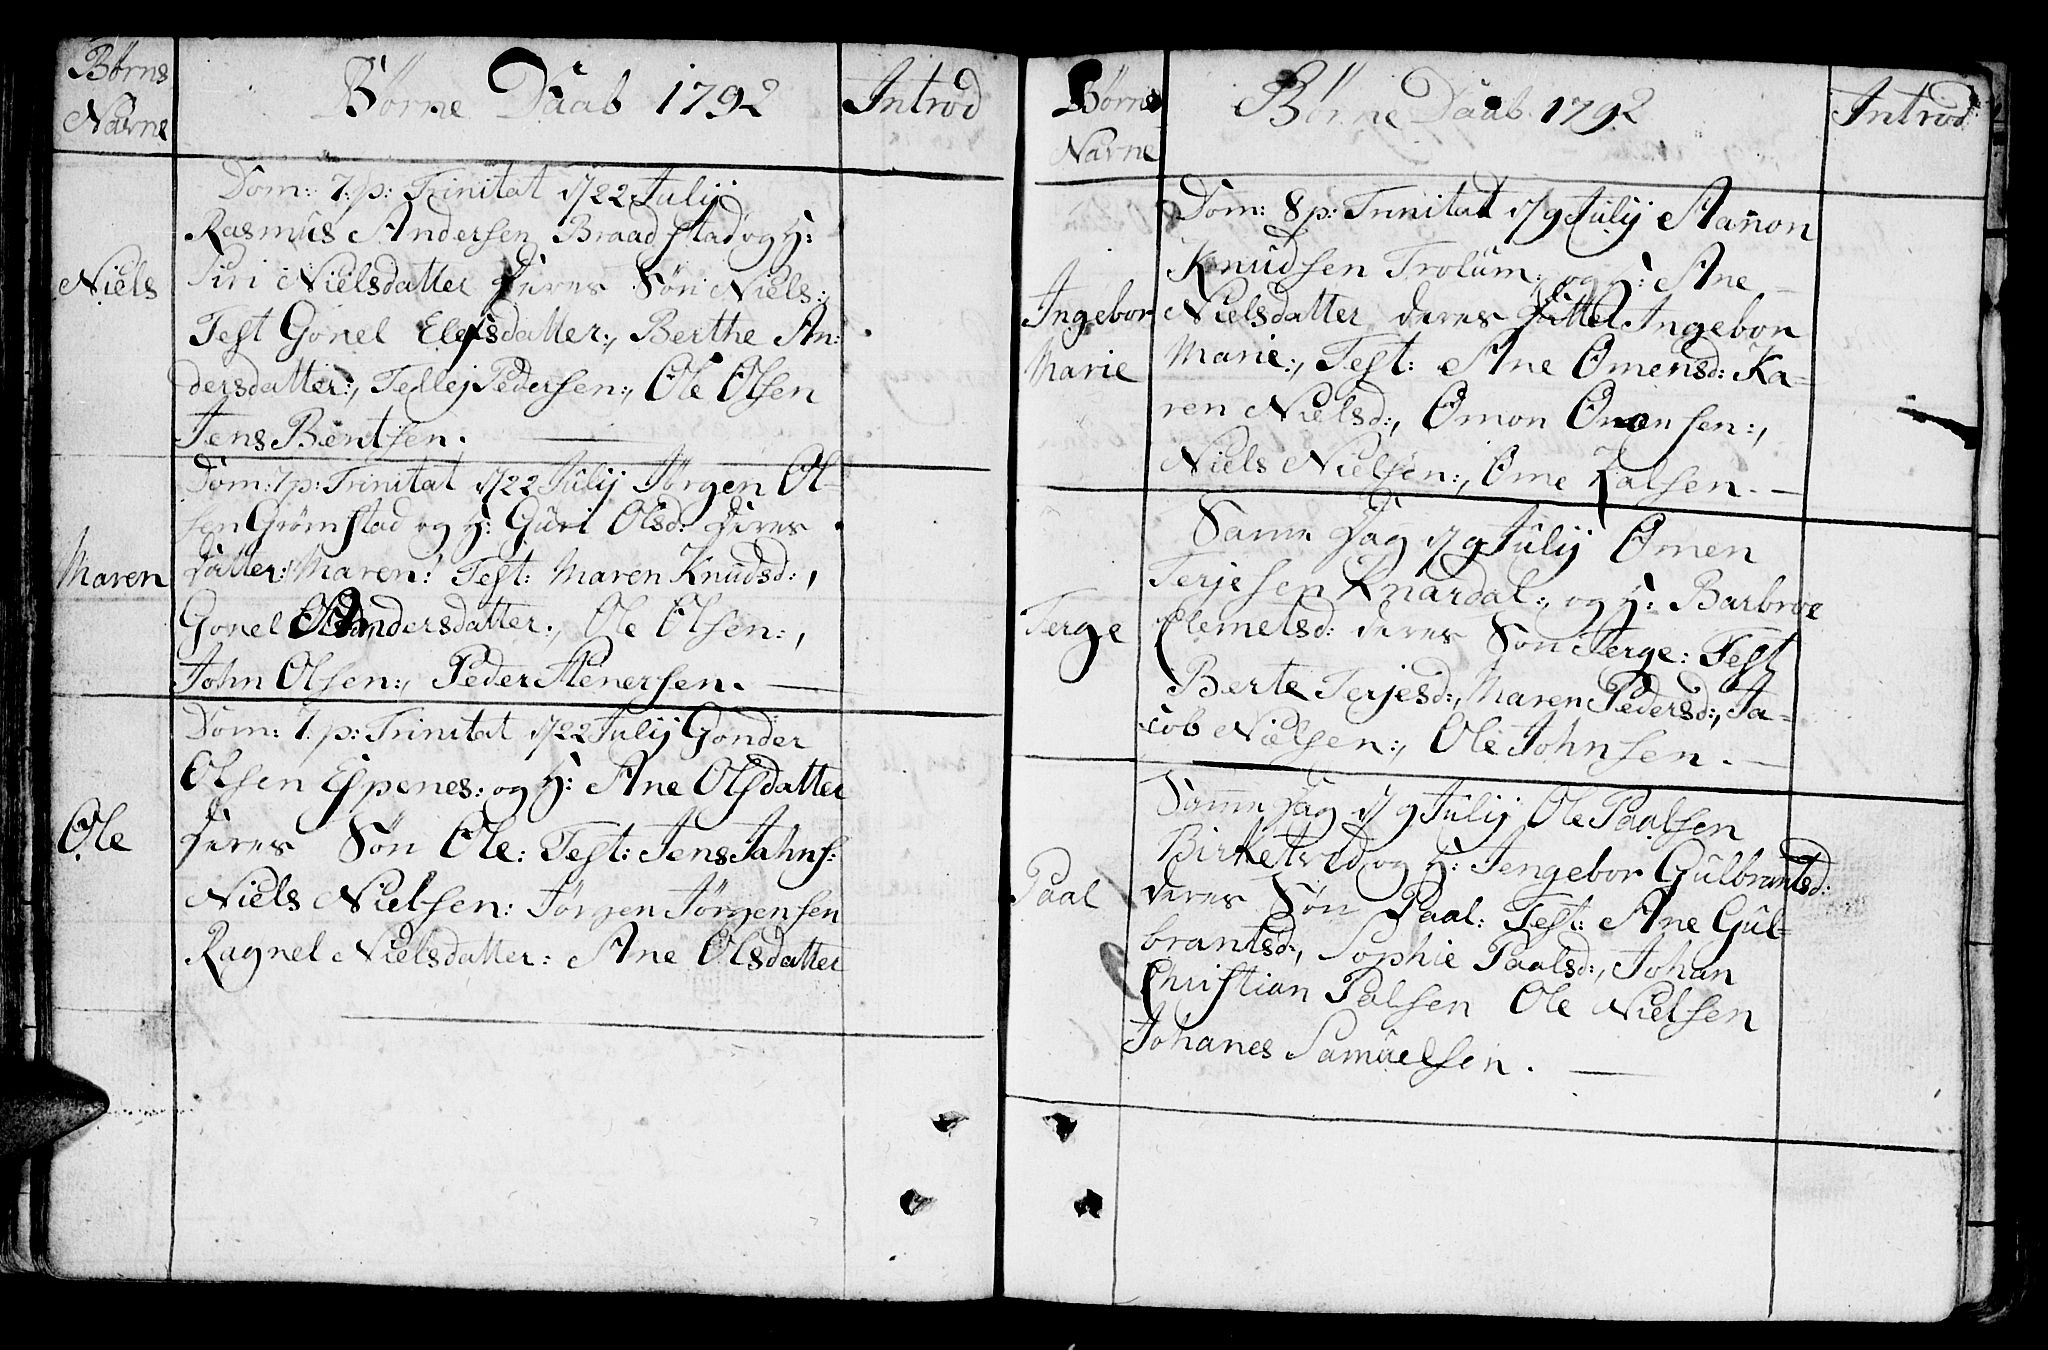 Børns
Navne
Børne Daab 1792
Introd
Dom: 7: p: Trinitat d 22 Julij
Rasmus Andersen Braadstad og H:
Niels
Siri Nielsdatter Deres Søn Niels:,
Test Gonel Elefsdatter:, Berthe An:
dersdatter:, Tellej Pedersen:, Ole Olsen
Jens Bentsen.
Dom: 7 p: Trinitat d 22 Julij Jørgen Ol-
sen Grømstad og H: Guri Olsd: Deres
Maren
Datter: Maren: Test: Maren Knudsd:,
Gonel Andersdatter:, Ole Olsen:,
John Olsen:, Peder Stenersen.
Dom: 7. p: Trinitat d 22 Julij Gonder
Olsen Espenes: og H: Ane Olsdatter
Ole
Deres Søn Ole: Test: Jens Jahns:
Niels Nielsen: Jørgen Jørgensen
Ragnel Nielsdatter: Ane Olsdatter
Børne
Navne
Børne Daab 1792
Introd:
Dom: 8 p: Trinitat d 29 Julij Aanon
Knudsen Trolum: og H: Ane
Ingebor
Nielsdatter deres Datter Ingebor
Marie
Marie:, Test: Ane Omensd: Ka-
ren Nielsd:, Omon Omensen:,
Niels Nielsen:, Ome Kalsen.
Samme Dag d 29 Julij Omen
Terjesen Knardal:, og H: Barbroe
Terge
Clemetsd: deres Søn Terge: Test
Berte Terjesd:, Maren Pedersd:, Ja-
cob Nielsen:, Ole Johnsen.
Samme Dag d 29 Julij Ole Paalsen
Birketved og H: Jengebor Gulbrantsd:
Paal
deres Søn Paal: Test: Ane Gul-
brantsd:, Sophie Paalsd:, Johan
Christian Palsen Ole Nielsen
Johanes Samuelsen.